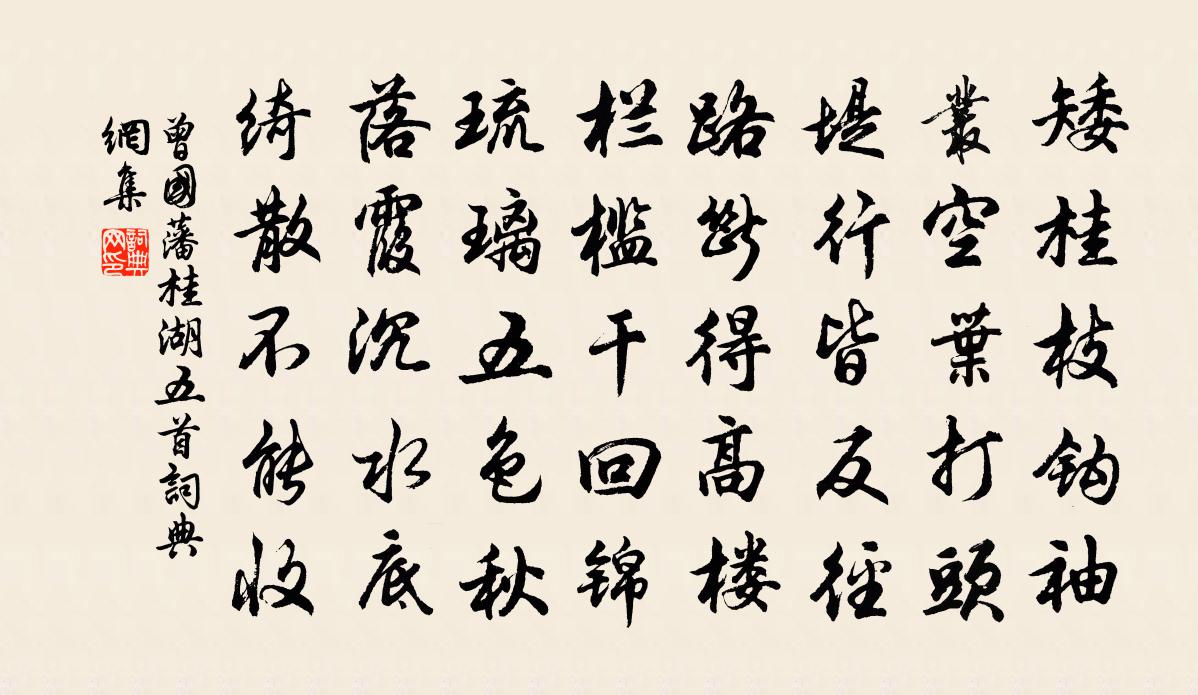 矮桂枝鈎袖
叢空葉打頭
堤行皆反徑
路斷得高楼
栏槛干回锦
琉璃五色秋
落霞沉水底
绮散不能收
曾國藩桂湖五首詞典
網集
詞典
网印